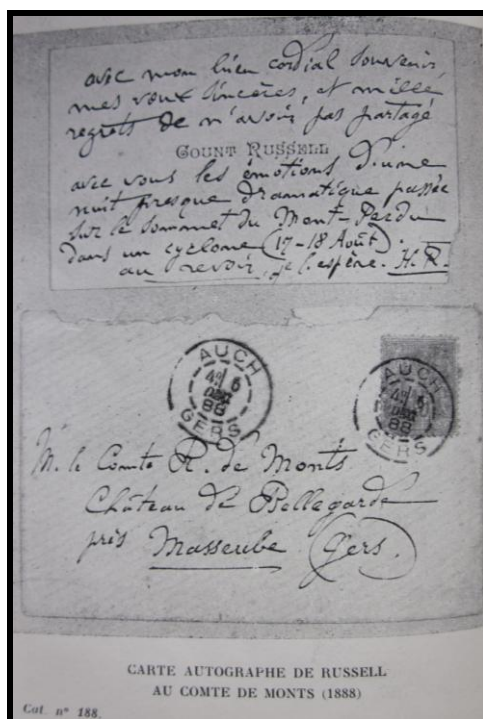 avec mon bien cordial souvenir,
mes vœux sincères, et mille
regrets de n'avoir pas partagé
COUNT RUSSELL
avec vous les émotions d'une
nuit presque dramatique passée
sur le sommet du Mont-Perdu
dans un cyclone (17-18 Août).
au revoir, je l'espère. H.R.
AUCH
6
DEC
88
GERS
AUCH
6
DEC
88
GERS
M. le Comte R. de Monts
Château de Bellegarde
près Masseube (Gers).
CARTE AUTOGRAPHE DE RUSSELL
AU COMTE DE MONTS (1888)
Cat. n° 188.